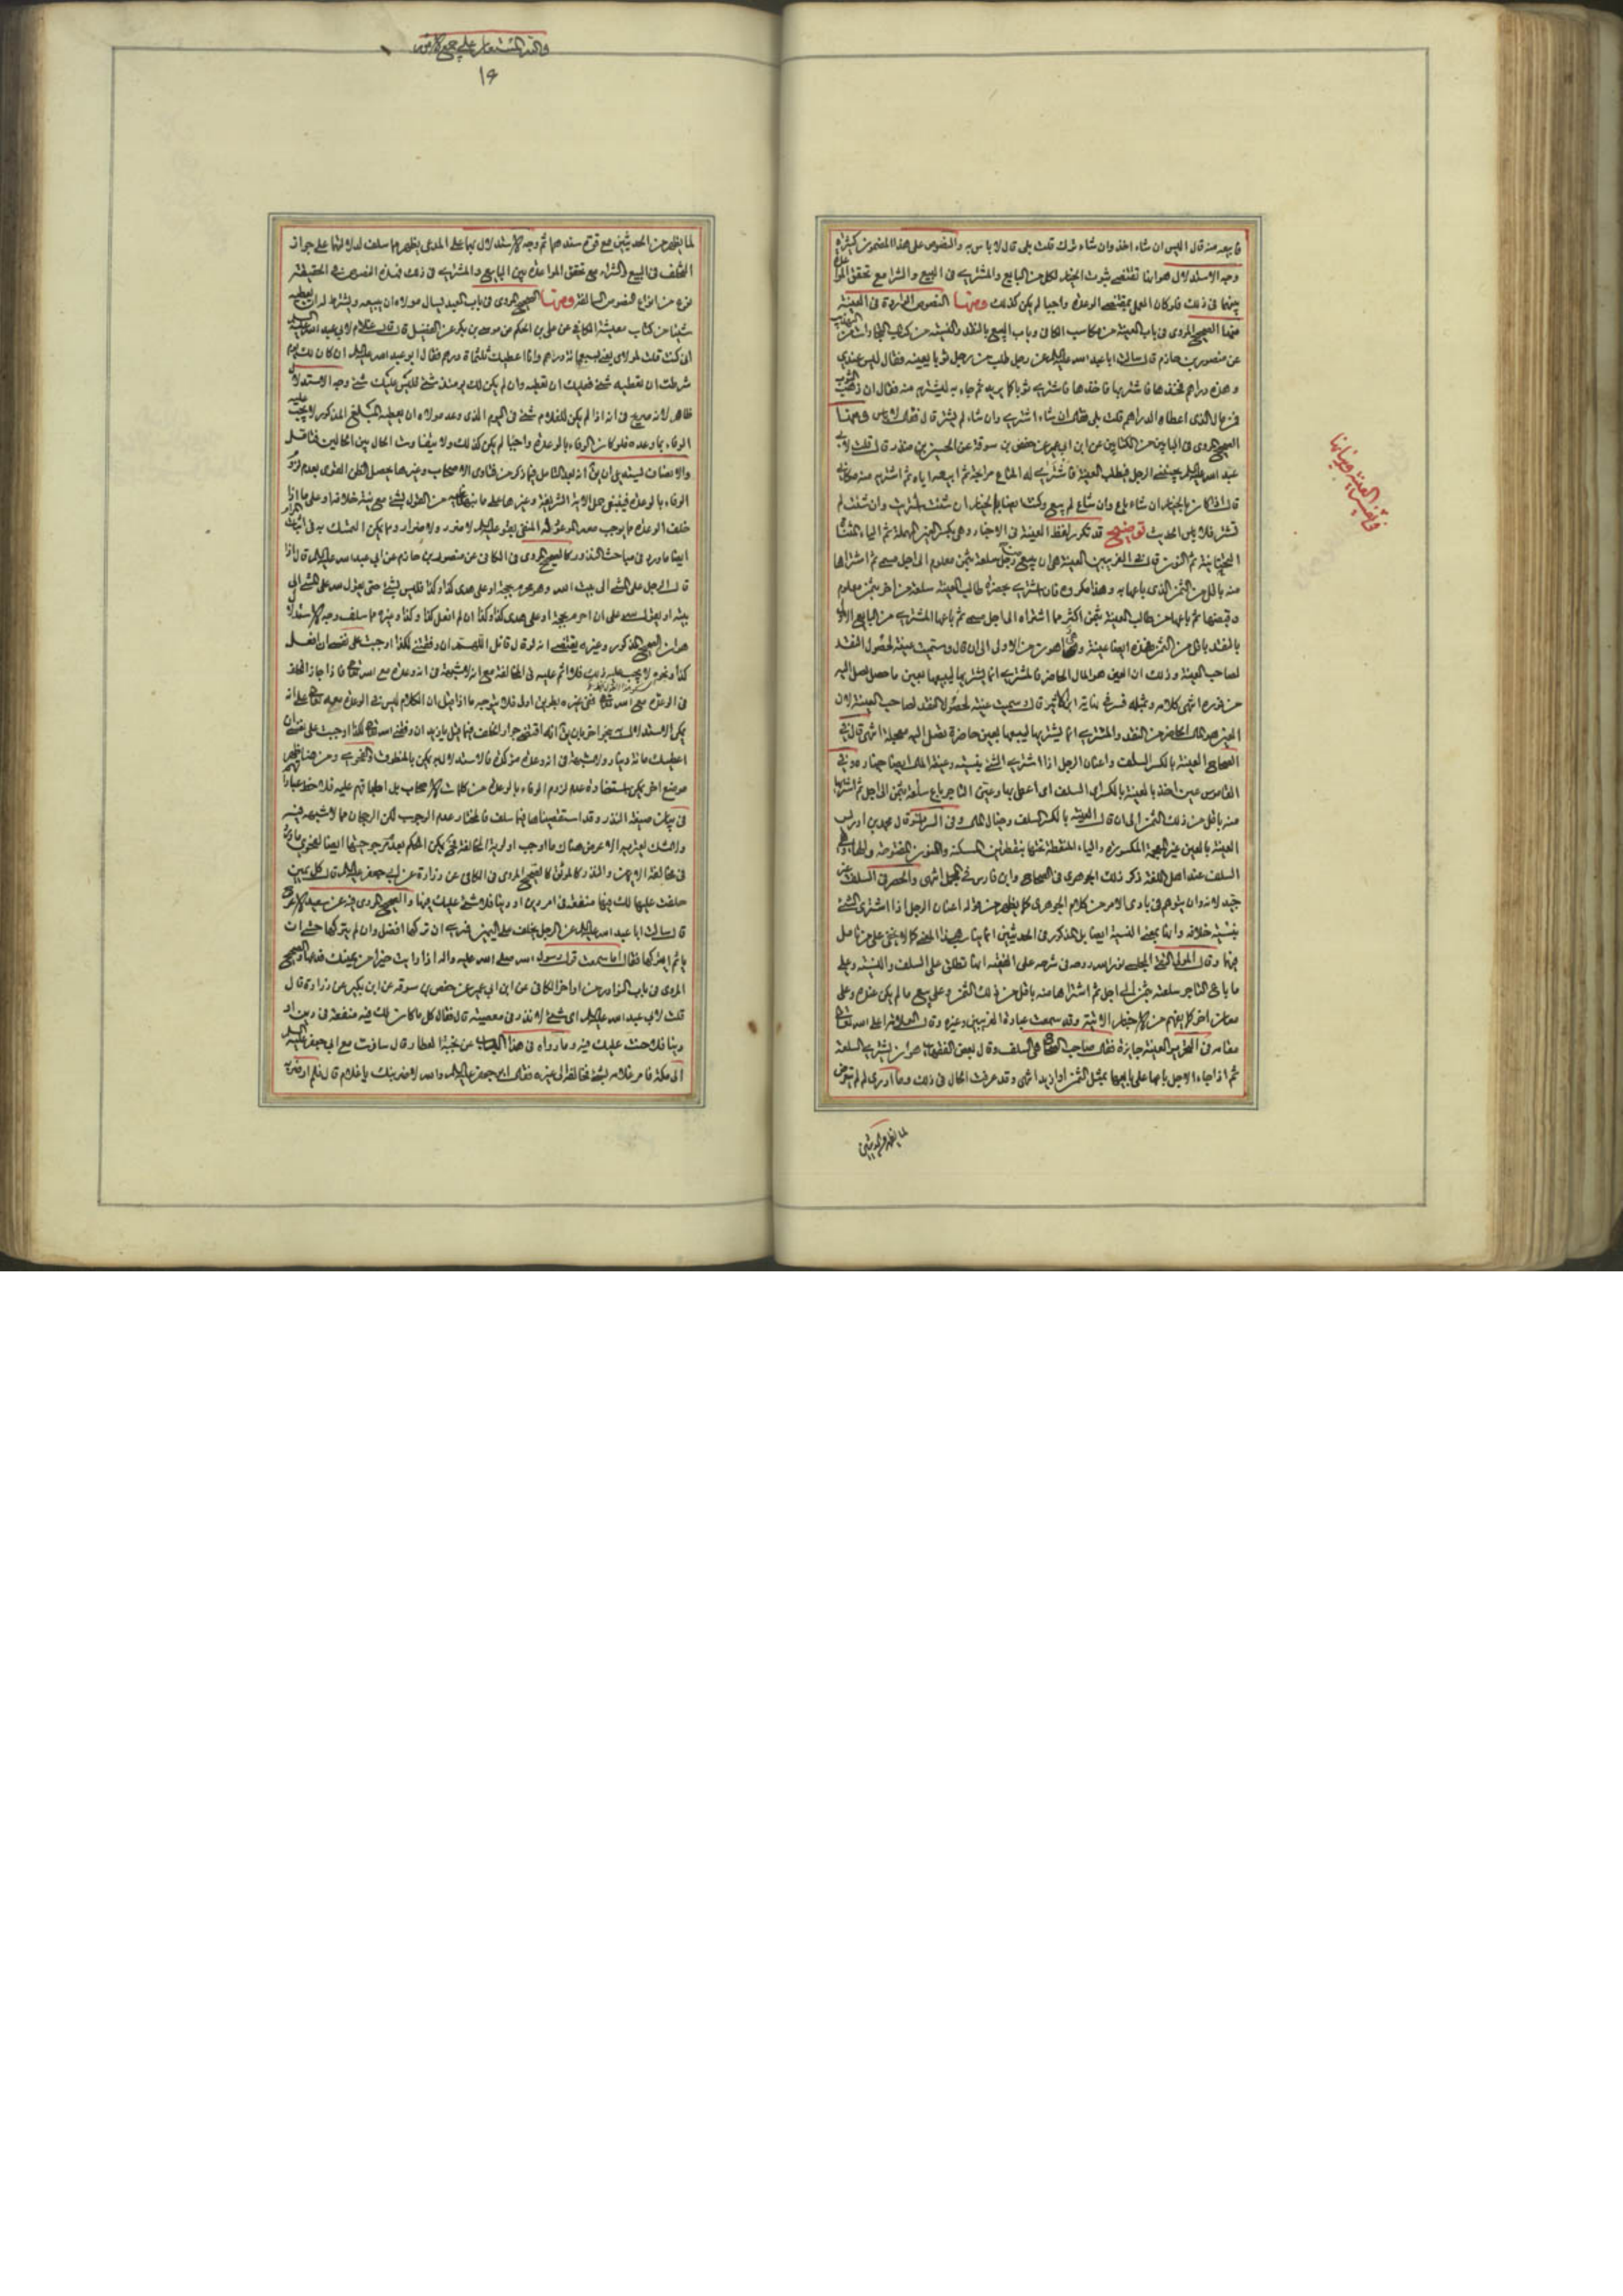 فابيعه منه قال اليس ان شاء اخذ وان شاء ترك قلت بلى قال لا باس به والنصوص على هذا المضمون كثيرة
وجه الاستدلال هو انها تقتضي ثبوت الخيار لكل من البايع والمشتري في البيع والشرا مع تحقق المواعدة
بينهما في ذلك فلو كان العمل بمقتضى الوعد واجبا لم يكن كذلك ومنها النصوص الواردة في العينة
منها الصحيح المروي في باب العينة من مكاسب الكافي وباب البيع بالنقد والنسية من التهذيب
عن منصور بن حازم قال سالت ابا عبد الله عليه السلم عن رجل طلب من رجل ثوبا بعينه فقال ليس عندي
وهذه دراهم فخذها فاشتر بها فاخذها فاشترى ثوبا كما يريد ثم جاء به ليشتريه منه فقال ان ذهب الثوب
فمن مال الذي اعطاه الدراهم قلت بلى فقال ان شاء اشترى وان شاء لم يشتر قال فقال لا باس ومنها
الصحيح المروي في البابين من الكتابين عن ابن ابي عمير عن حفص بن سوقة عن الحسين بن منذر قال قلت لابي
عبد الله عليه السلم يجيئني الرجل فيطلب العينة فاشتري له المتاع مرابحة ثم ابيعه اياه ثم اشتريه منه مكاني
قال اذا كان بالخيار ان شاء باع وان شاء لم يبع وكنت ايضا بالخيار ان شئت اشتريت وان شئت لم
تشتر فلا باس الحديث توضيح قد تكرر لفظ العينة في الاخبار وهي بكسر العين المهملة ثم الياء المثناة
التحتانية ثم النون قال في الغريبين العينة هي ان يبيع من رجل سلعة بثمن معلوم الى اجل مسمى ثم اشتراها
منه باقل من الثمن الذي باعها به وهذا مكروه فان اشترى بحضرة طالب العينة سلعة من اخر بثمن معلوم
وقبضها ثم باعها من طالب العينة بثمن اكثر مما اشتراه الى اجل مسمى ثم باعها المشتري من البايع الاول
بالنقد باقل من الثمن فهذه ايضا عينة وهي اهون من الاول الى ان قال وسميت عينة لحصول النقد
لصاحب العينة وذلك ان العين هو المال الحاضر فالمشتري انما يشتريها ليبيعها بعين حاصل يصل اليه
من فوره انتهى كلامه ومثله في نهاية ابن الاثير قال سميت عينة لحصول النقد لصاحب العينة لان
العين هو المال الحاضر من النقد والمشتري انما يشتريها ليبيعها بعين حاضرة تصل اليه معجلة انتهى قال في
الصحاح العينة بالكسر السلف واعتان الرجل اذا اشترى الشئ بنسيه وعينة المال ايضا خياره وفي
القاموس عين اخذ بالعينة بالكسر اي السلف او اعطى بها وعين التاجر باع سلعته بثمن الى اجل ثم اشتراها
منه باقل من ذلك الثمن الى ان قال العينة بالكسر السلف وخيار المال وفي السراير قال محمد بن ادريس
العينة بالعين غير المعجمة المكسورة والياء المنقطة تحتها بنقطتين المسكنة والنون المفتوحة والهاء
السلف عند اهل اللغة ذكر ذلك الجوهري في الصحاح وابن فارس في المجمل انتهى والحصر في السلف غير
جيد لانه وان يتوهم في بادى الامر من كلام الجوهري كما يظهر من قوله اعتان الرجل اذا اشترى الشئ
بنسية خلافه وانها بمعنى النسية ايضا بل المذكور في الحديثين انما يناسب هذا المعنى كما لا يخفى على من تامل
فيهما وقال المولى التقي المجلسي نور الله روحه في شرحه على الفقيه انها تطلق على السلف والنسية وعلى
ما باع التاجر سلعته بثمن الى اجل ثم اشتراها منه باقل من ذلك الثمن وعلى بيع ما لم يكن عنده وعلى
معان اخر كما يفهم من الاخبار الاتية وقد سمعت عبارة الغريبين وغيره وقال العلامة اعلى الله تعالى
مقامه في التحرير العينة جايزة فقال صاحب الصحاح هي السلف وقال بعض الفقهاء هو ان يشتري السلعة
ثم اذا جاء الاجل باعها على بايعها بمثل الثمن او ازيد انتهى وقد عرفت الحال في ذلك وما ادري لم لم يتعرض
في تفسير العينة وبيانها
لما يظهر من الحديثين
والله المستعان على جميع الامور
١٤
لما يظهر من الحديثين مع قوة سندهما ثم وجه الاستدلال بها على المدعى يظهر مما سلف لدلالتها على جواز
التخلف في البيع والشراء مع تحقق المواعدة بين البايع والمشتري في ذلك فهذه النصوص في الحقيقة
نوع من انواع النصوص السالفة ومنها الصحيح المروي في باب العبد يسال مولاه ان يبيعه ويشترط له ان يعطيه
شيئا من كتاب معيشة الكافي عن علي بن الحكم عن موسى بن بكر عن الفضيل قال قال غلام لابي عبد الله عليه السلم
اني كنت قلت لمولاي يعني بسبعمائة درهم وانا اعطيك ثلثمائة درهم فقال ابو عبد الله عليه السلم ان كان لك يوم
شرطت ان تعطيه شئ فعليك ان تعطيه وان لم يكن لك يومئذ شئ فليس عليك شئ وجه الاستدلال
ظاهر لانه صريح في انه اذا لم يكن للغلام شئ في اليوم الذي وعد مولاه ان يعطيه المبلغ المذكور لا يجب عليه
الوفاء بما وعده فلو كان الوفاء بالوعد واجبا لم يكن كذلك ولا يتفاوت الحال بين الحالين فتامل
والانصاف يستدعي ان بعد التامل فيما ذكر من فتاوى الاصحاب وغيرها يحصل الظن القوي بعدم لزوم
الوفاء بالوعد فينبغي حمل الاية الشريفة وغيرها على ما من القول لشئ مع نية خلافه او على ما اذا
خلف الوعد مما يوجب الضرر المنفي بقوله عليه السلم لا ضرر ولا ضرار ومما يمكن التمسك به في اثبات المرام
ايضا ما ورد في مباحث النذور كالصحيح المروي في الكافي عن منصور بن حازم عن ابي عبد الله عليه السلم قال اذا
قال الرجل علي المشي الى بيت الله وهو محرم بحجة او علي هدي كذا وكذا فليس بشئ حتى يقول لله علي المشي الى
بيته او يقول لله علي ان احرم بحجة او علي هدي كذا وكذا ان لم افعل كذا وكذا وغيره مما سلف وجه الاستدلال
هو ان الصحيح المذكور وغيره يقتضي انه لو قال قائل اللهم ان وفقتني لكذا اوجبت على نفسي ان افعل
كذا ونحوه لا يجب عليه ذلك فلا اثم عليه في المخالفة مع انه لا شبهة في انه وعده مع الله تعالى فاذا جاز الخلف
في الوعد مع الله تعالى ففي غيره بطريق اولى فلا يتوجه ما اذا قيل ان الكلام ليس في الوعد معه تعالى على انه
يمكن الاستدلال بنحو اخر بان يقال انه اقتضى جواز الخلف فيما قيل يا زيد ان وفقني الله تعالى لكذا اوجبت على نفسي ان
اعطيك مائة دينار ولا شبهة في انه وعد من ذلك فالاستدلال به يمكن بالمنطوق والفحوى ومن هنا يظهر
موضع اخر يمكن استفادة عدم لزوم الوفاء بالوعد من كلمات الاصحاب بل اطباقهم عليه فلاحظ عباراتهم
في بيان صيغة النذر وقد استقصيناها فيما سلف فالمختار عدم الوجوب لكن الرجحان مما لا شبهة فيه
ولا شك يعتريه الا عروض هناك ما اوجب اولوية المخالفة فح يمكن الحكم بعدم مرجوحيتها ايضا لفحوى ما ورد
في مخالفة الايمان والنذور كالموثق كالصحيح المروي في الكافي عن زرارة عن ابي جعفر عليه السلم قال كل يمين
حلفت عليها لك فيها منفعة في امر دين او دنيا فلا شئ عليك فيها والصحيح المروي فيه عن سعيد الاعرج
قال سالت ابا عبد الله عليه السلم عن الرجل يحلف على اليمين فيرى ان تركها افضل وان لم يتركها خشي ان
ياثم ايتركها فقال اما سمعت قول رسول الله صلى الله عليه واله اذا رايت خيرا من يمينك فدعها والصحيح
المروي في باب النوادر من اواخر الكافي عن ابن ابي عمير عن حفص بن سوقه عن ابن بكير عن زرارة قال
قلت لابي عبد الله عليه السلم اي شئ لا نذر في معصية قال فقال كل ما كان لك فيه منفعة في دين او
دنيا فلا حنث عليك فيه وما رواه في هذا الباب عن نجية العطار قال سافرت مع ابي جعفر عليه السلم
الى مكة فامر غلامه بشئ فخالفه الى غيره فقال ابو جعفر عليه السلم والله لاضربنك يا غلام قال فلم اره ضربه